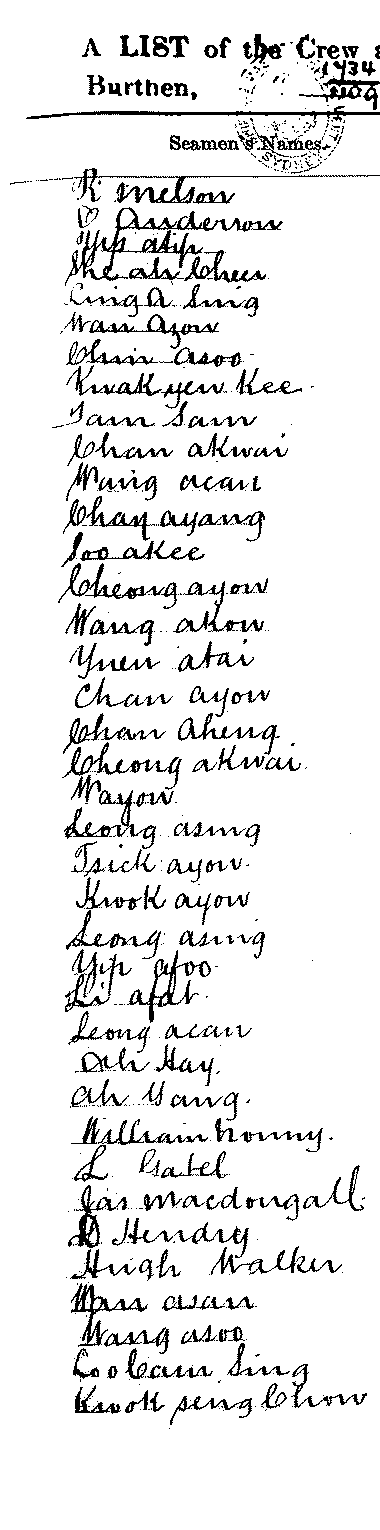 A LIST of the Crew a
Burthen,
1434
Seamen's Names.
R Melson
Anderson
Yip atip
She ah Cheu
Ling A Sing
Wan Ayow
Chin asoo
Kwak yen Kee
Sam Sam
Chan akwai
Wang acan
Chan ayang
Soo akee
Cheong ayow
Wang akow
Yuen atai
Chan ayow
Chan Aheng
Cheong akwai
Wayow
Leong asing
Tsick ayow
Kwok ayow
Leong asing
Yip afoo
Li afat
Leong acan
Ah Hay.
Ah Yang.
William Nonny.
L Gatel
Jas Macdougall
D Hendry
Hugh Walker
Wan asan
Wang asoo
Loo Cam Sing
Kwok seng Chow